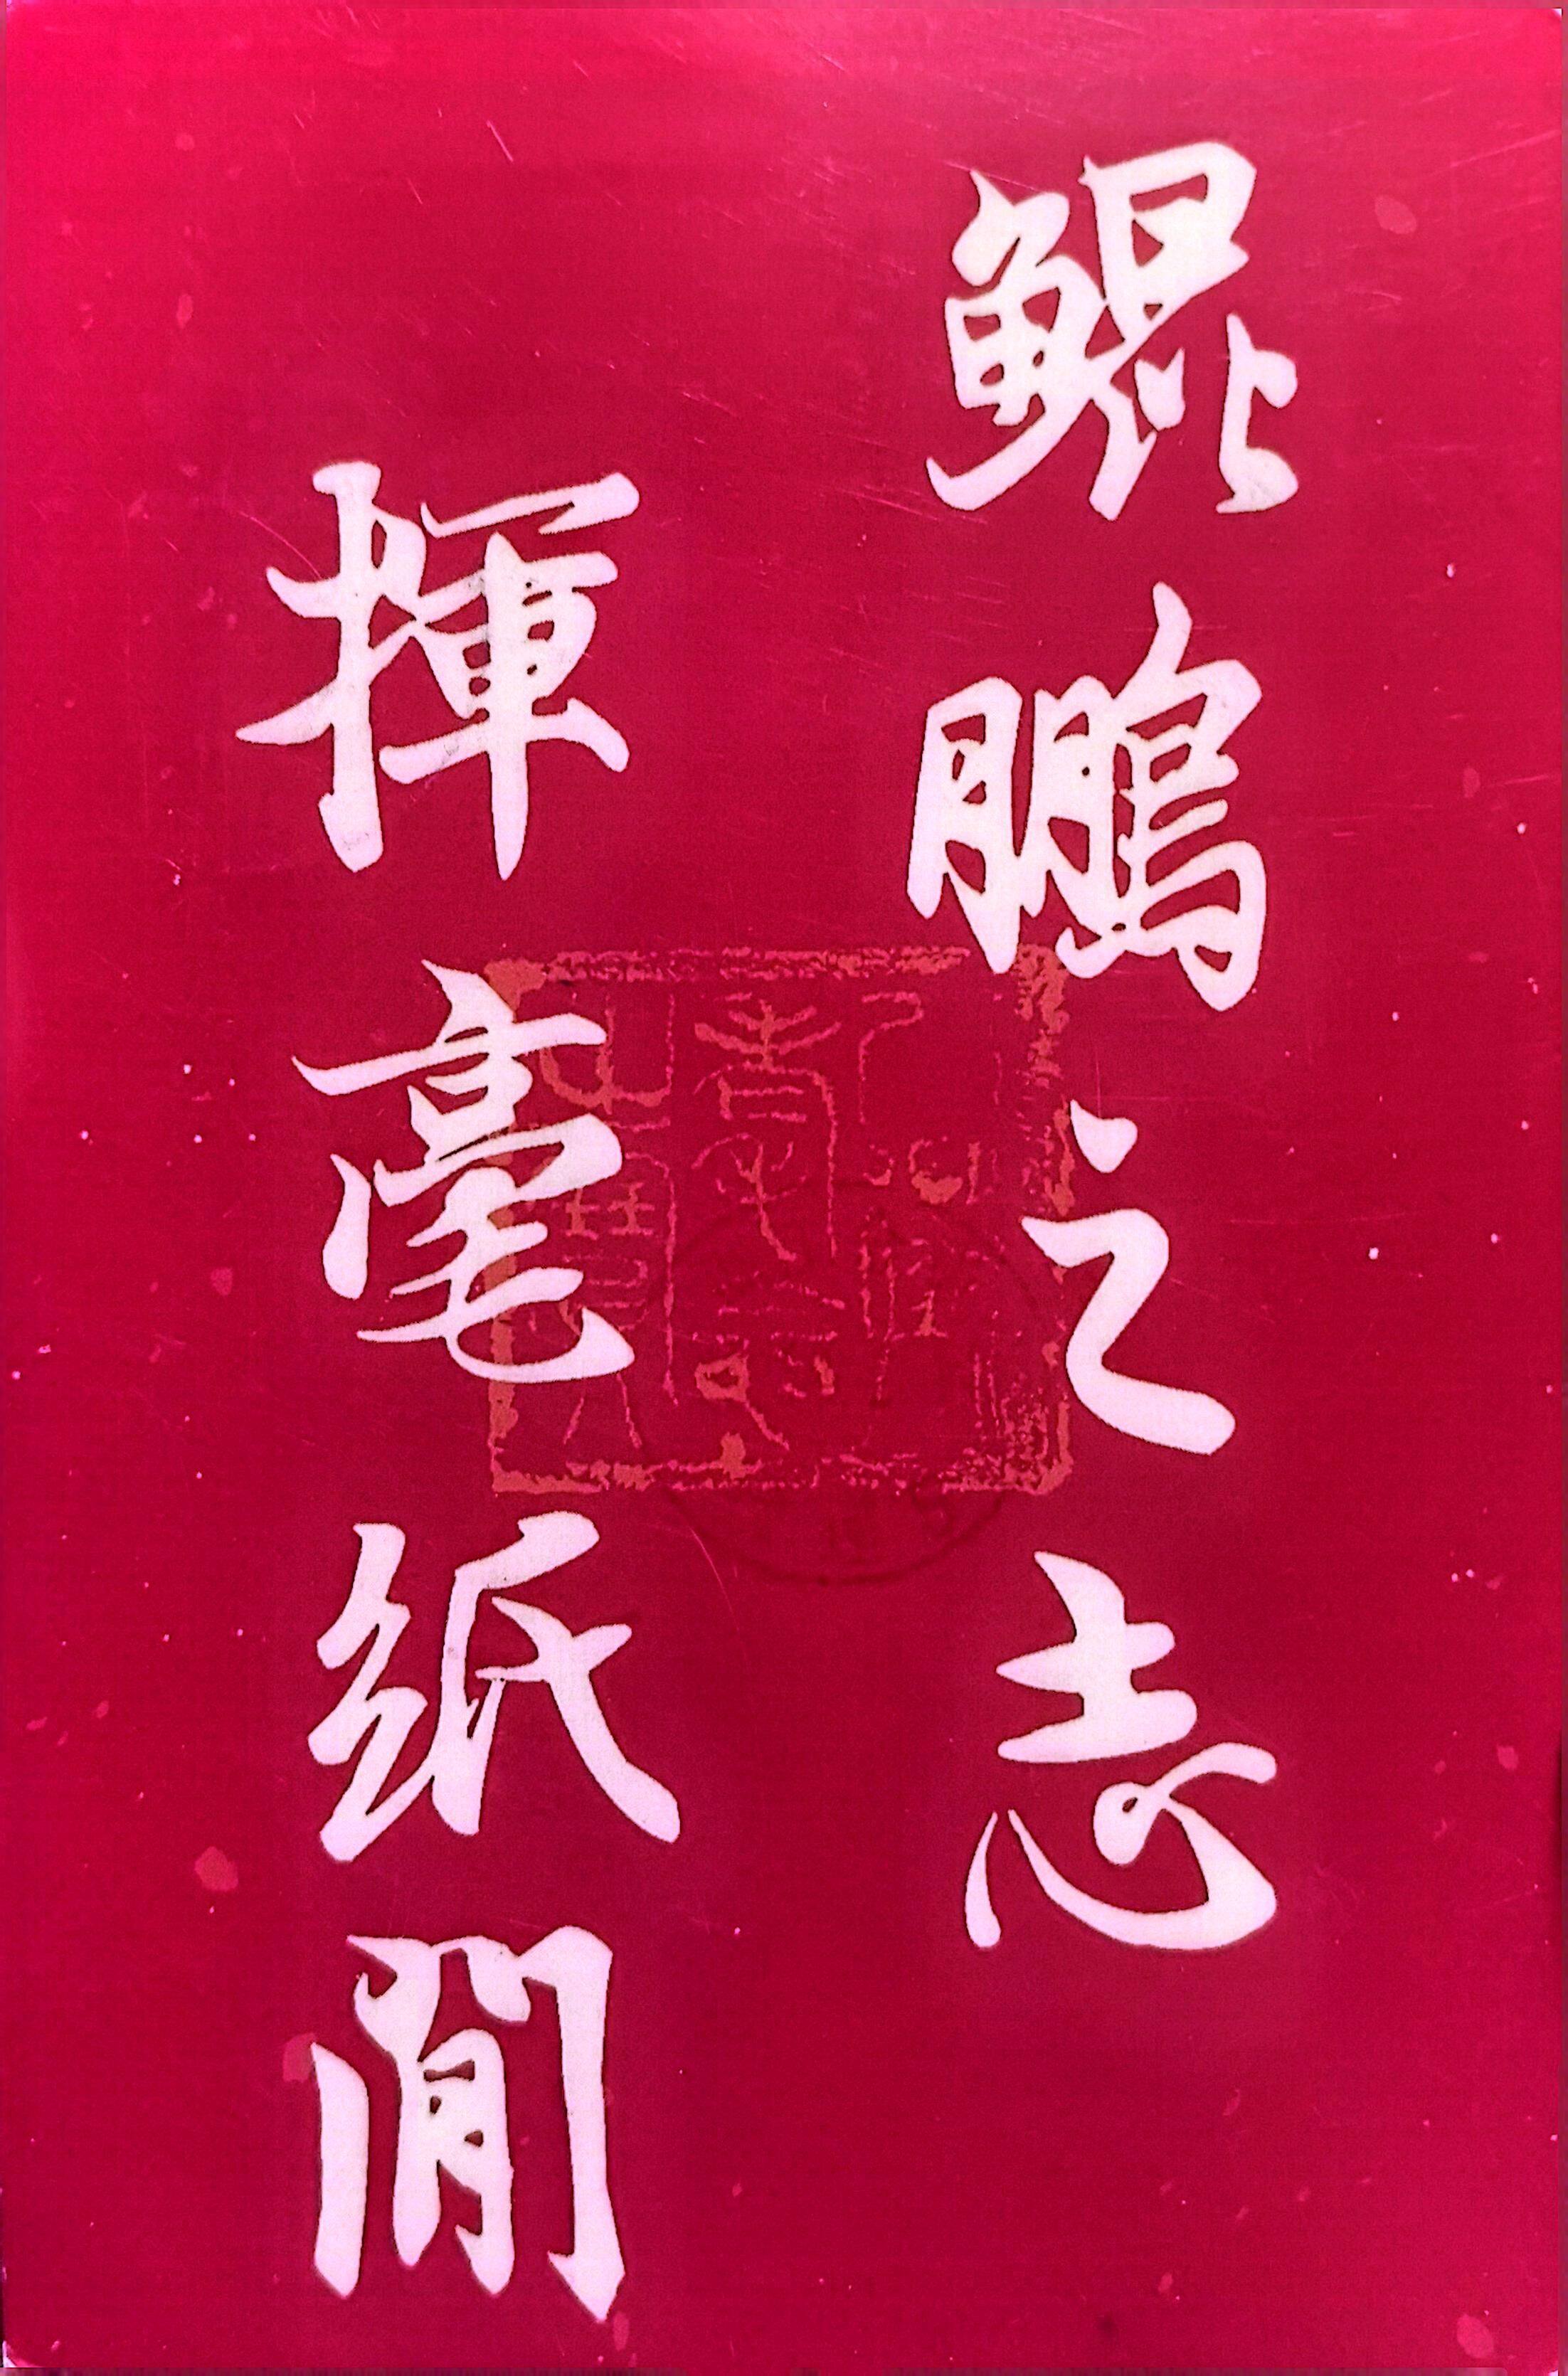 鯤鵬之志
揮毫紙間